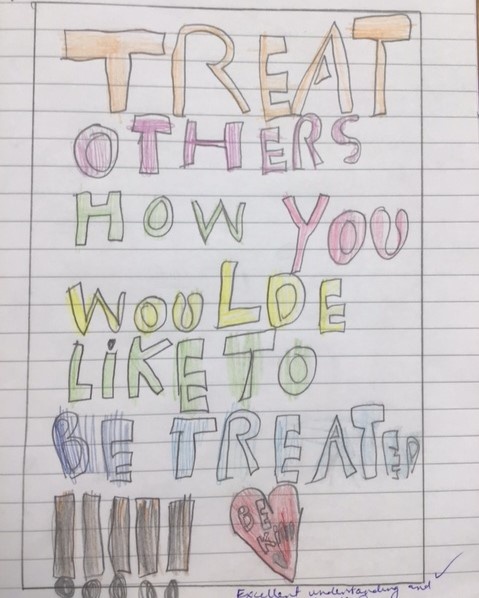 TREAT
OTHERS
HOW YOU
WOULDE
LiKE TO
BE TREATED
!!!!!
BE
KIND
Excellent understanding and ✓